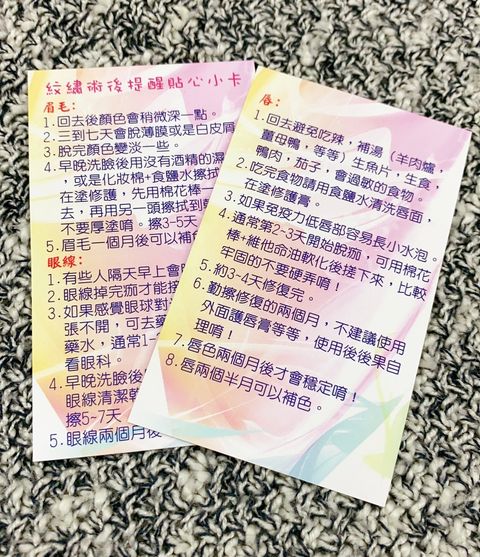 紋繡術後提醒貼心小卡
眉毛:
1.回去後顏色會稍微深一點。
2.三到七天會脫薄膜或是白皮屑
3.脫完顏色變淡一些。
4.早晚洗臉後用沒有酒精的濕
，或是化妝棉+食鹽水擦拭
在塗修護，先用棉花棒一
去，再用另一頭擦拭到乾
不要厚塗唷。擦3-5天
5.眉毛一個月後可以補
眼線:
1.有些人隔天早上會
2.眼線掉完痂才能接
3.如果感覺眼球對
張不開，可去藥
藥水，通常1-
看眼科。
4.早晚洗臉後
眼線清潔
擦5-7天
5.眼線兩個月後
唇:
1.回去避免吃辣，補湯（羊肉爐，
薑母鴨，等等）生魚片，生食，
鴨肉，茄子，會過敏的食物。
2.吃完食物請用食鹽水清洗唇面，
在塗修護膏。
3.如果免疫力低唇部容易長小水泡。
4.通常第2-3天開始脫痂，可用棉花
棒+維他命油軟化後搓下來，比較
牢固的不要硬弄唷！
5.約3-4天修復完。
6.勤擦修復的兩個月，不建議使用
外面護唇膏等等，使用後後果自
理唷！
7.唇色兩個月後才會穩定唷！
8.唇兩個半月可以補色。